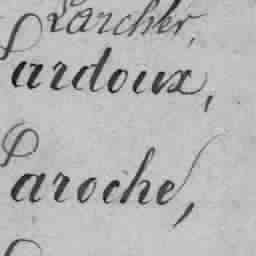 Larcher,
Lardoux,
Laroche,